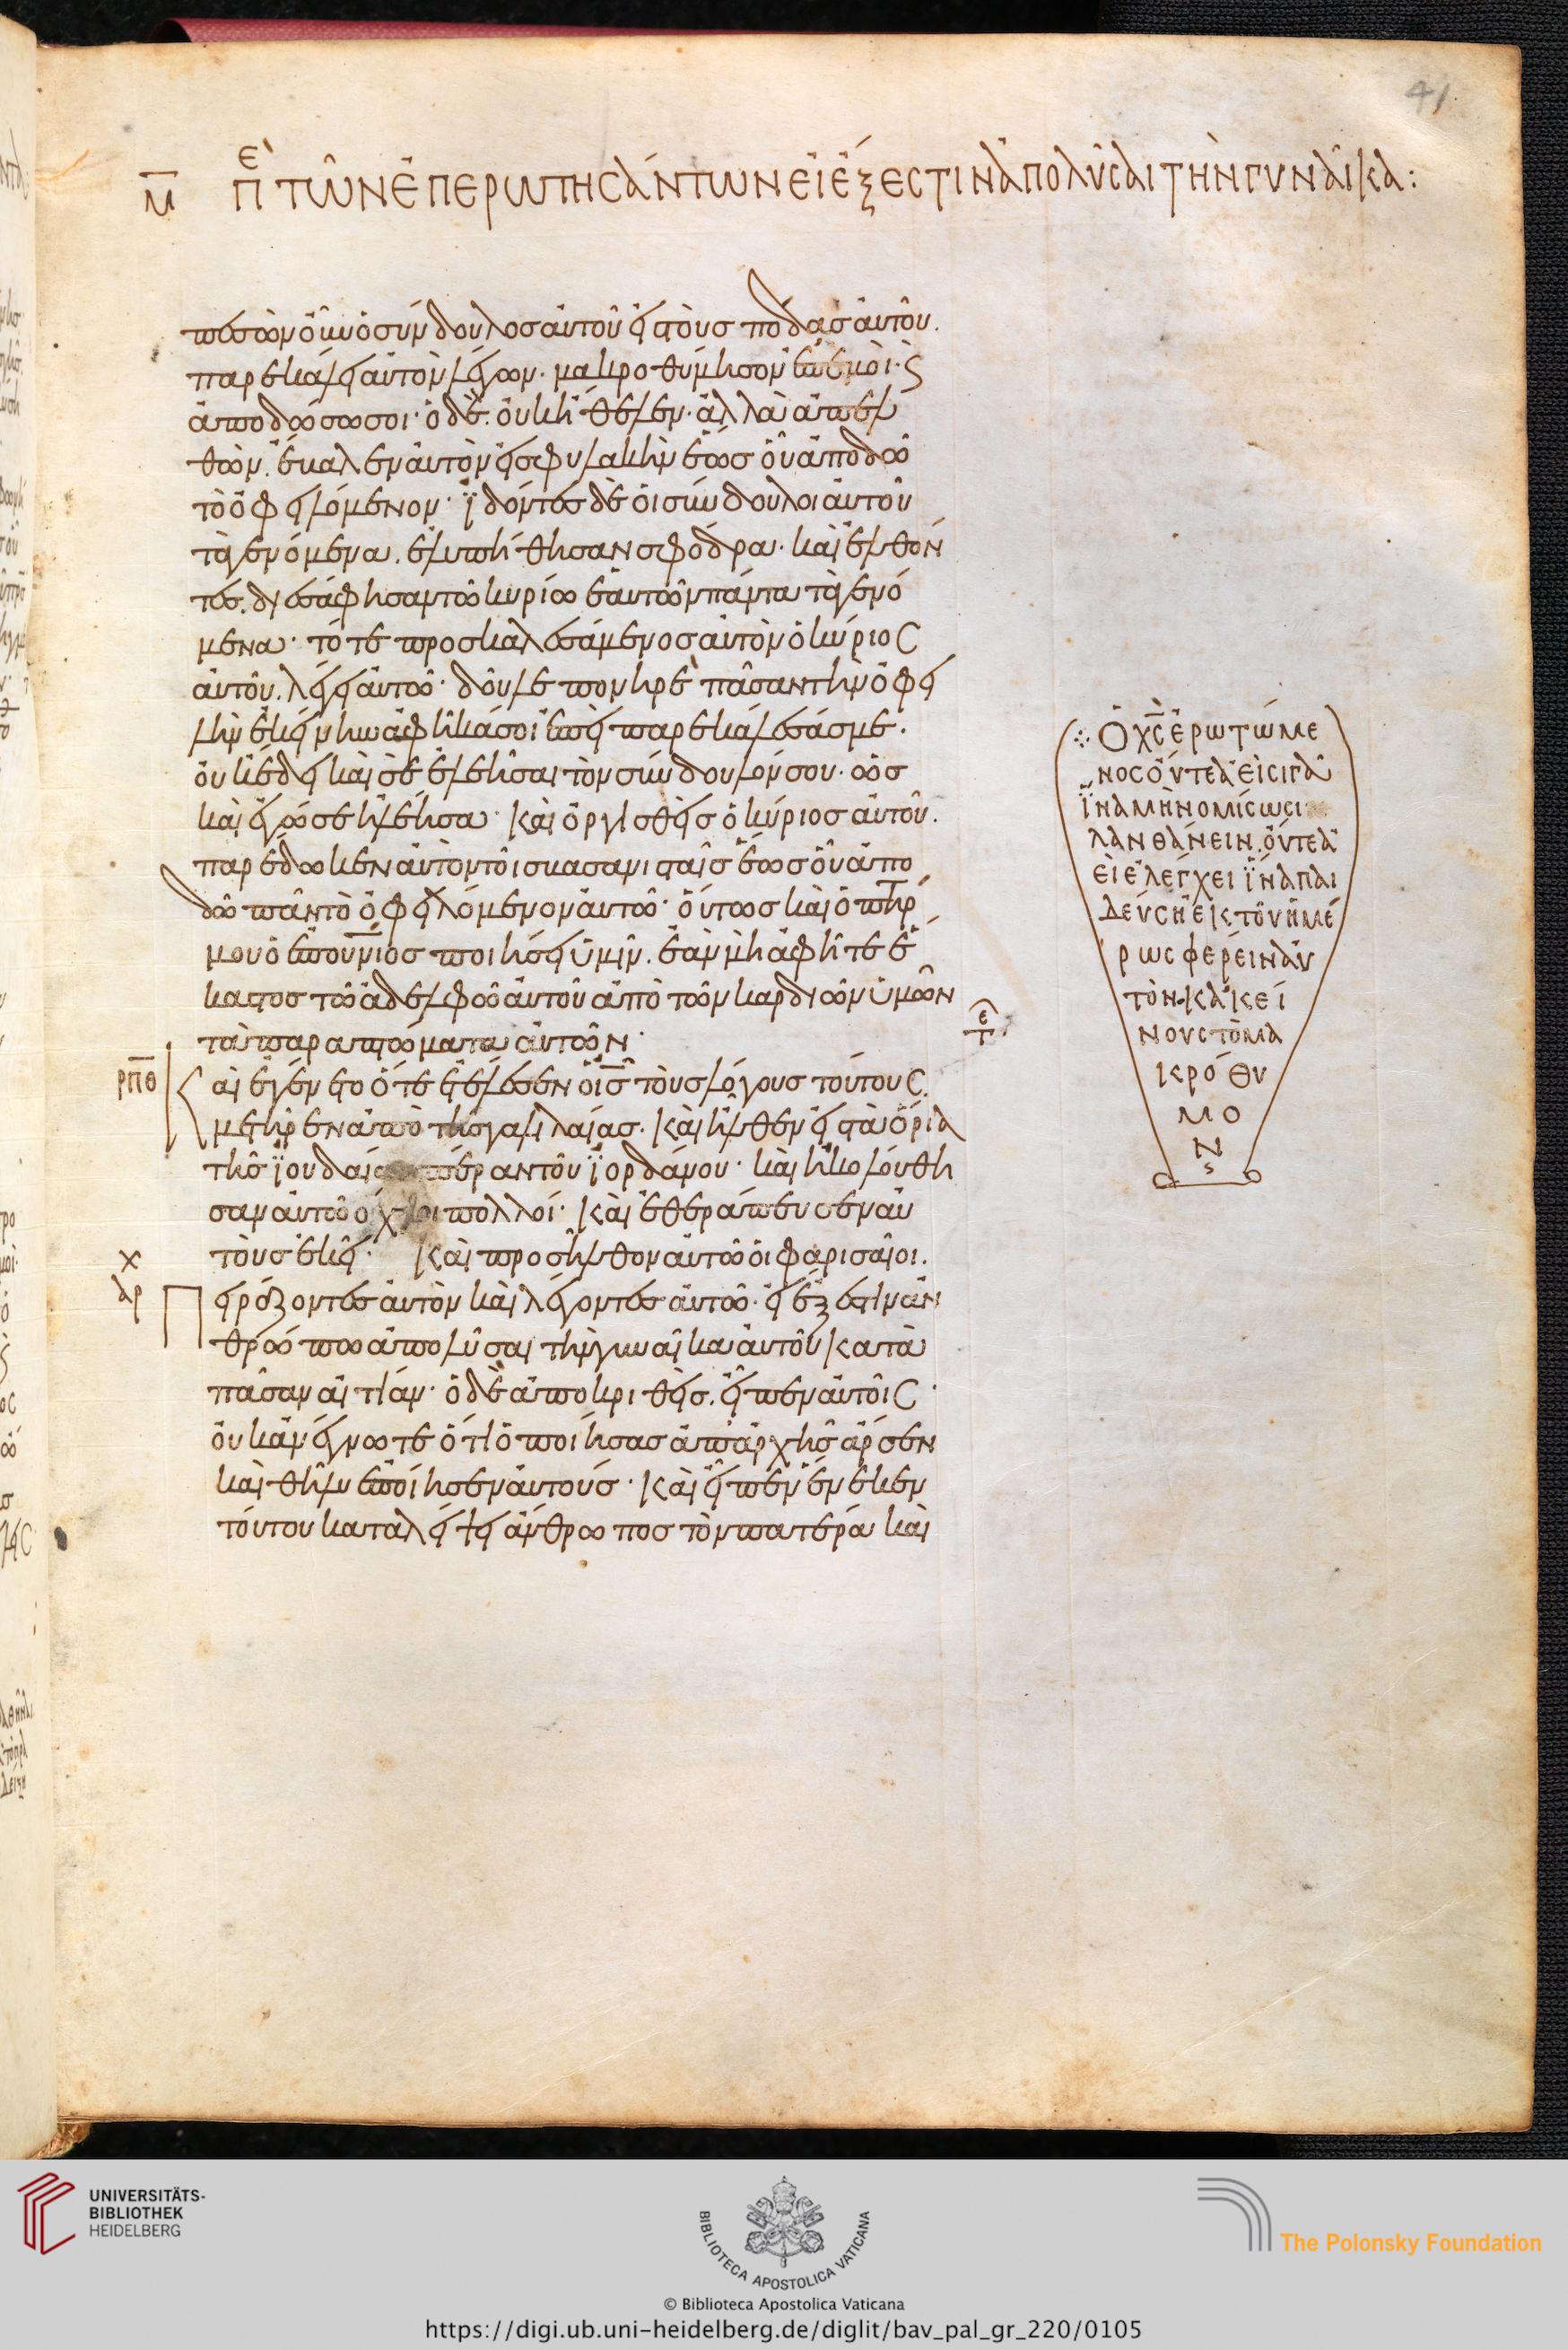 41
Μ̅ Πὲ τῶν ἐπερωτησάντων εἰ ἔξεστιν ἀπολῦσαι τὴν γυναῖκα:
πεσὼν οὖν ὁ σύνδουλος αὐτοῦ εἰς τοὺς πόδας αὐτοῦ.
παρεκάλει αὐτὸν λέγων· μακροθύμησον ἐπ' ἐμοὶ· ϛ
ἀποδώσω σοι· ὁ δὲ. οὐκ ἤθελεν· ἀλλὰ ἀπελ
θὼν. ἔβαλεν αὐτὸν εἰς φυλακὴν ἕως οὗ ἀποδῶ
τὸ ὀφειλόμενον· ἰδόντες δὲ οἱ σύνδουλοι αὐτοῦ
τὰ γενόμενα. ἐλυπήθησαν σφόδρα· καὶ ἐλθόν
τες. διεσάφησαν τῶ κυρίω ἑαυτῶν πάντα τὰ γενό
μενα· τότε προσκαλεσάμενος αὐτὸν ὁ κύριος
αὐτοῦ. λέγει αὐτῶ· δοῦλε πονηρὲ πᾶσαν τὴν ὀφει
λὴν ἐκείνην ἀφῆκά σοι ἐπεὶ παρεκάλεσάς με.
οὐκ ἔδει καὶ σὲ ἐλεῆσαι τὸν σύνδουλόν σου. ὡς
καὶ ἐγώ σε ἠλέησα· καὶ ὀργισθεὶς ὁ κύριος αὐτοῦ.
παρέδωκεν αὐτὸν τοῖς βασανισταῖς ἕως οὗ ἀπο
δῶ πᾶν τὸ ὀφειλόμενον αὐτῶ· οὕτως καὶ ὁ π̅η̅ρ
μου ὁ ἐπουνιος ποιήσει ὑμῖν. ἐὰν μὴ ἀφῆτε ἕ
καστος τῶ ἀδελφῶ αὐτοῦ ἀπὸ τῶν καρδιῶν ὑμῶν
τὰ παραπτώματα αὐτῶν·
ρπθ Καὶ ἐγένετο ὅτε ἐτέλεσεν ὁ ι̅ς̅ τοὺς λόγους τούτους.
μετῆρεν ἀπὸ τῆς γαλιλαίας. καὶ ἦλθεν εἰς τὰ ὅρια
τῆς ἰουδαίας πέραν τοῦ ἰορδάνου· καὶ ἠκολούθη
σαν αὐτῶ ὄχλοι πολλοί· καὶ ἐθεράπευσεν αὐ
τοὺς ἐκεῖ· Καὶ προσῆλθον αὐτῶ οἱ φαρισαῖοι.
Πειράζοντες αὐτὸν καὶ λέγοντες αὐτῶ· εἰ ἔξεστιν ἀν
θρώπω ἀπολῦσαι τὴν γυναῖκα αὐτοῦ κατὰ
πᾶσαν αἰτίαν· ὁ δὲ ἀποκριθεὶς. εἶπεν αὐτοῖς·
οὐκ ἀνέγνωτε ὅτι ὁ ποιήσας ἀπ' ἀρχῆς ἄρσεν
καὶ θῆλυ ἐποίησεν αὐτούς· καὶ εἶπεν ἕνεκεν
τούτου καταλείψει ἄνθρωπος τὸν πατέρα καὶ
Ὁ χ̅ς̅ ἐρωτώμε
νος οὔτε ἀεὶ σιγᾶ
ἵνα μὴ νομίσωσι
λανθάνειν. οὔτε ἀ
εὶ ἐλέγχει ἵνα παι
δεύση ἐκ τοῦ ἡμέ
ρως φέρειν αὐ
τὸν· κἀκεί
νους τὸ μα
κρόθυ
μο
ν
χ
αρ
ε
τ
UNIVERSITÄTS-
BIBLIOTHEK
HEIDELBERG
BIBLIOTECA APOSTOLICA VATICANA
The Polonsky Foundation
© Biblioteca Apostolica Vaticana
https://digi.ub.uni-heidelberg.de/diglit/bav_pal_gr_220/0105